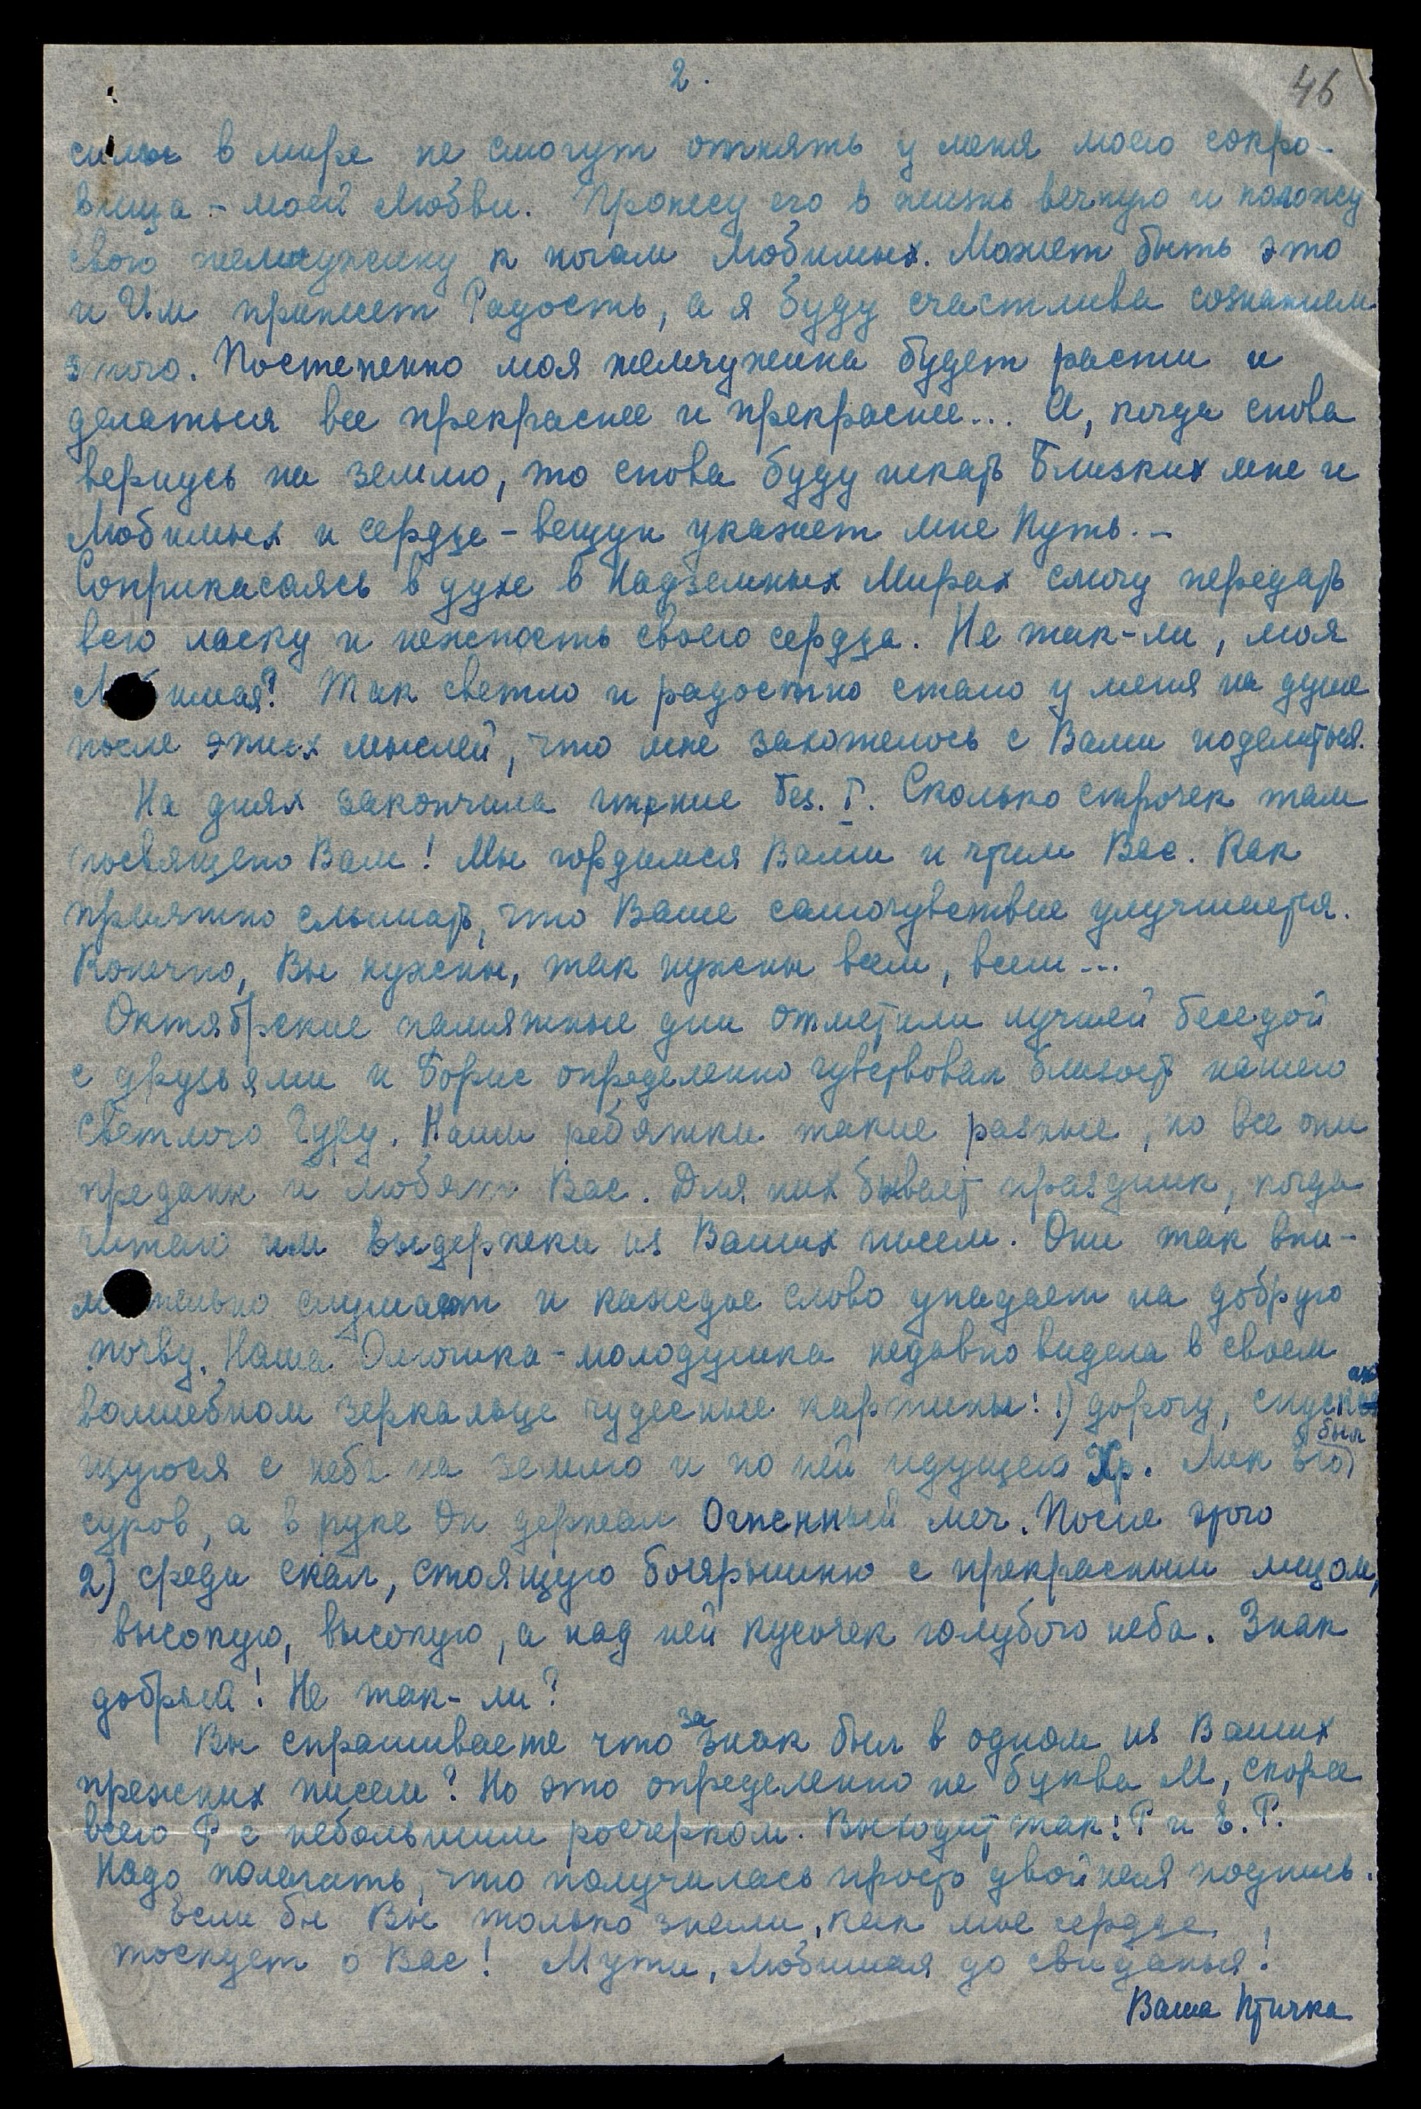 2.
46
силы в мире не смогут отнять у меня моего сокро-
вища - моей Любви. Пронесу его в жизнь вечную и положу
свою жемчужинку к ногам Любимых. Может быть это
и Им принесет Радость, а я буду счастлива сознанием
этого. Постепенно моя жемчужина будет расти и
делаться все прекраснее и прекраснее... А, когда снова
вернусь на землю, то снова буду искать Близких мне и
Любимых и сердце - вещун укажет мне Путь. -
Соприкасаясь в духе в Надземных Мирах смогу передать
всю ласку и нежность своего сердца. Не так-ли, моя
Любимая? Так светло и радостно стало у меня на душе
после этих мыслей, что мне захотелось с Вами поделиться.
На днях закончила чтение Без. I. Сколько строчек там
посвящено Вам! Мы гордимся Вами и чтим Вас. Как
приятно слышать, что Ваше самочувствие улучшается.
Конечно, Вы нужны, так нужны всем, всем...
Октябрские памятные дни отметили лучшей беседой
с друзьями и Борис определенно чувствовал близость нашего
Светлого Гуру. Наши ребятки такие разные, но все они
преданы и любят Вас. Для них бывает праздник, когда
читаю им выдержки из Ваших писем. Они так вни-
мательно слушают и каждое слово упадает на добрую
почву. Наша Олюшка-молодушка недавно видела в своем
волшебном зеркальце чудесные картины: 1) дорогу, спускаю
щуюся с неба на землю и по ней идущего Хр. Лик Его был
суров, а в руке Он держал Огненный меч. После этого
2) среди скал, стоящую боярышню с прекрасным лицом,
высокую, высокую, а над ней кусочек голубого неба. Знак
добрый! Не так-ли?
Вы спрашиваете что за знак был в одном из Ваших
прежних писем? Но это определенно не буква М, скорее
всего Р с небольшим росчерком. Выходит так: Р и Е.Р.
Надо полагать, что получилась просто двойная подпись.
Если бы Вы только знали, как мое сердце
тоскует о Вас! Мути, Любимая до свиданья!
Ваша Птичка